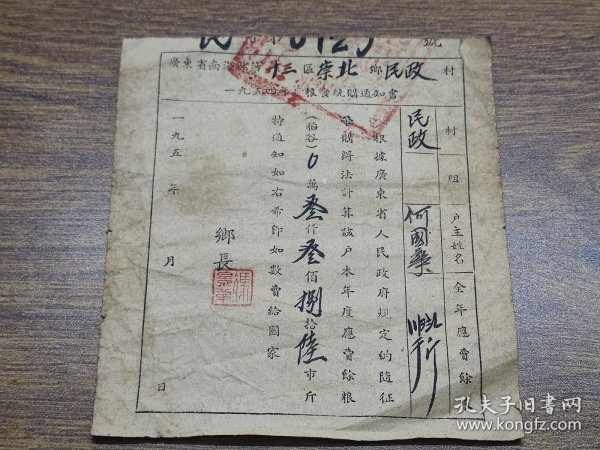 民 字第 6129 號
廣東省南海縣第十三區崇北鄉民政村
一九五四年 粮食統購通知書
民政 村 組
戶主姓名 何國
全年應賣餘
根據廣東省人民政府規定的隨征
購辦法計算該戶本年度應賣餘粮
(稻谷) 0萬叁仟叁佰捌拾陸市斤
特通知如右希即如數賣給國家
鄉長
一九五 年 月 日
孔夫子旧书网